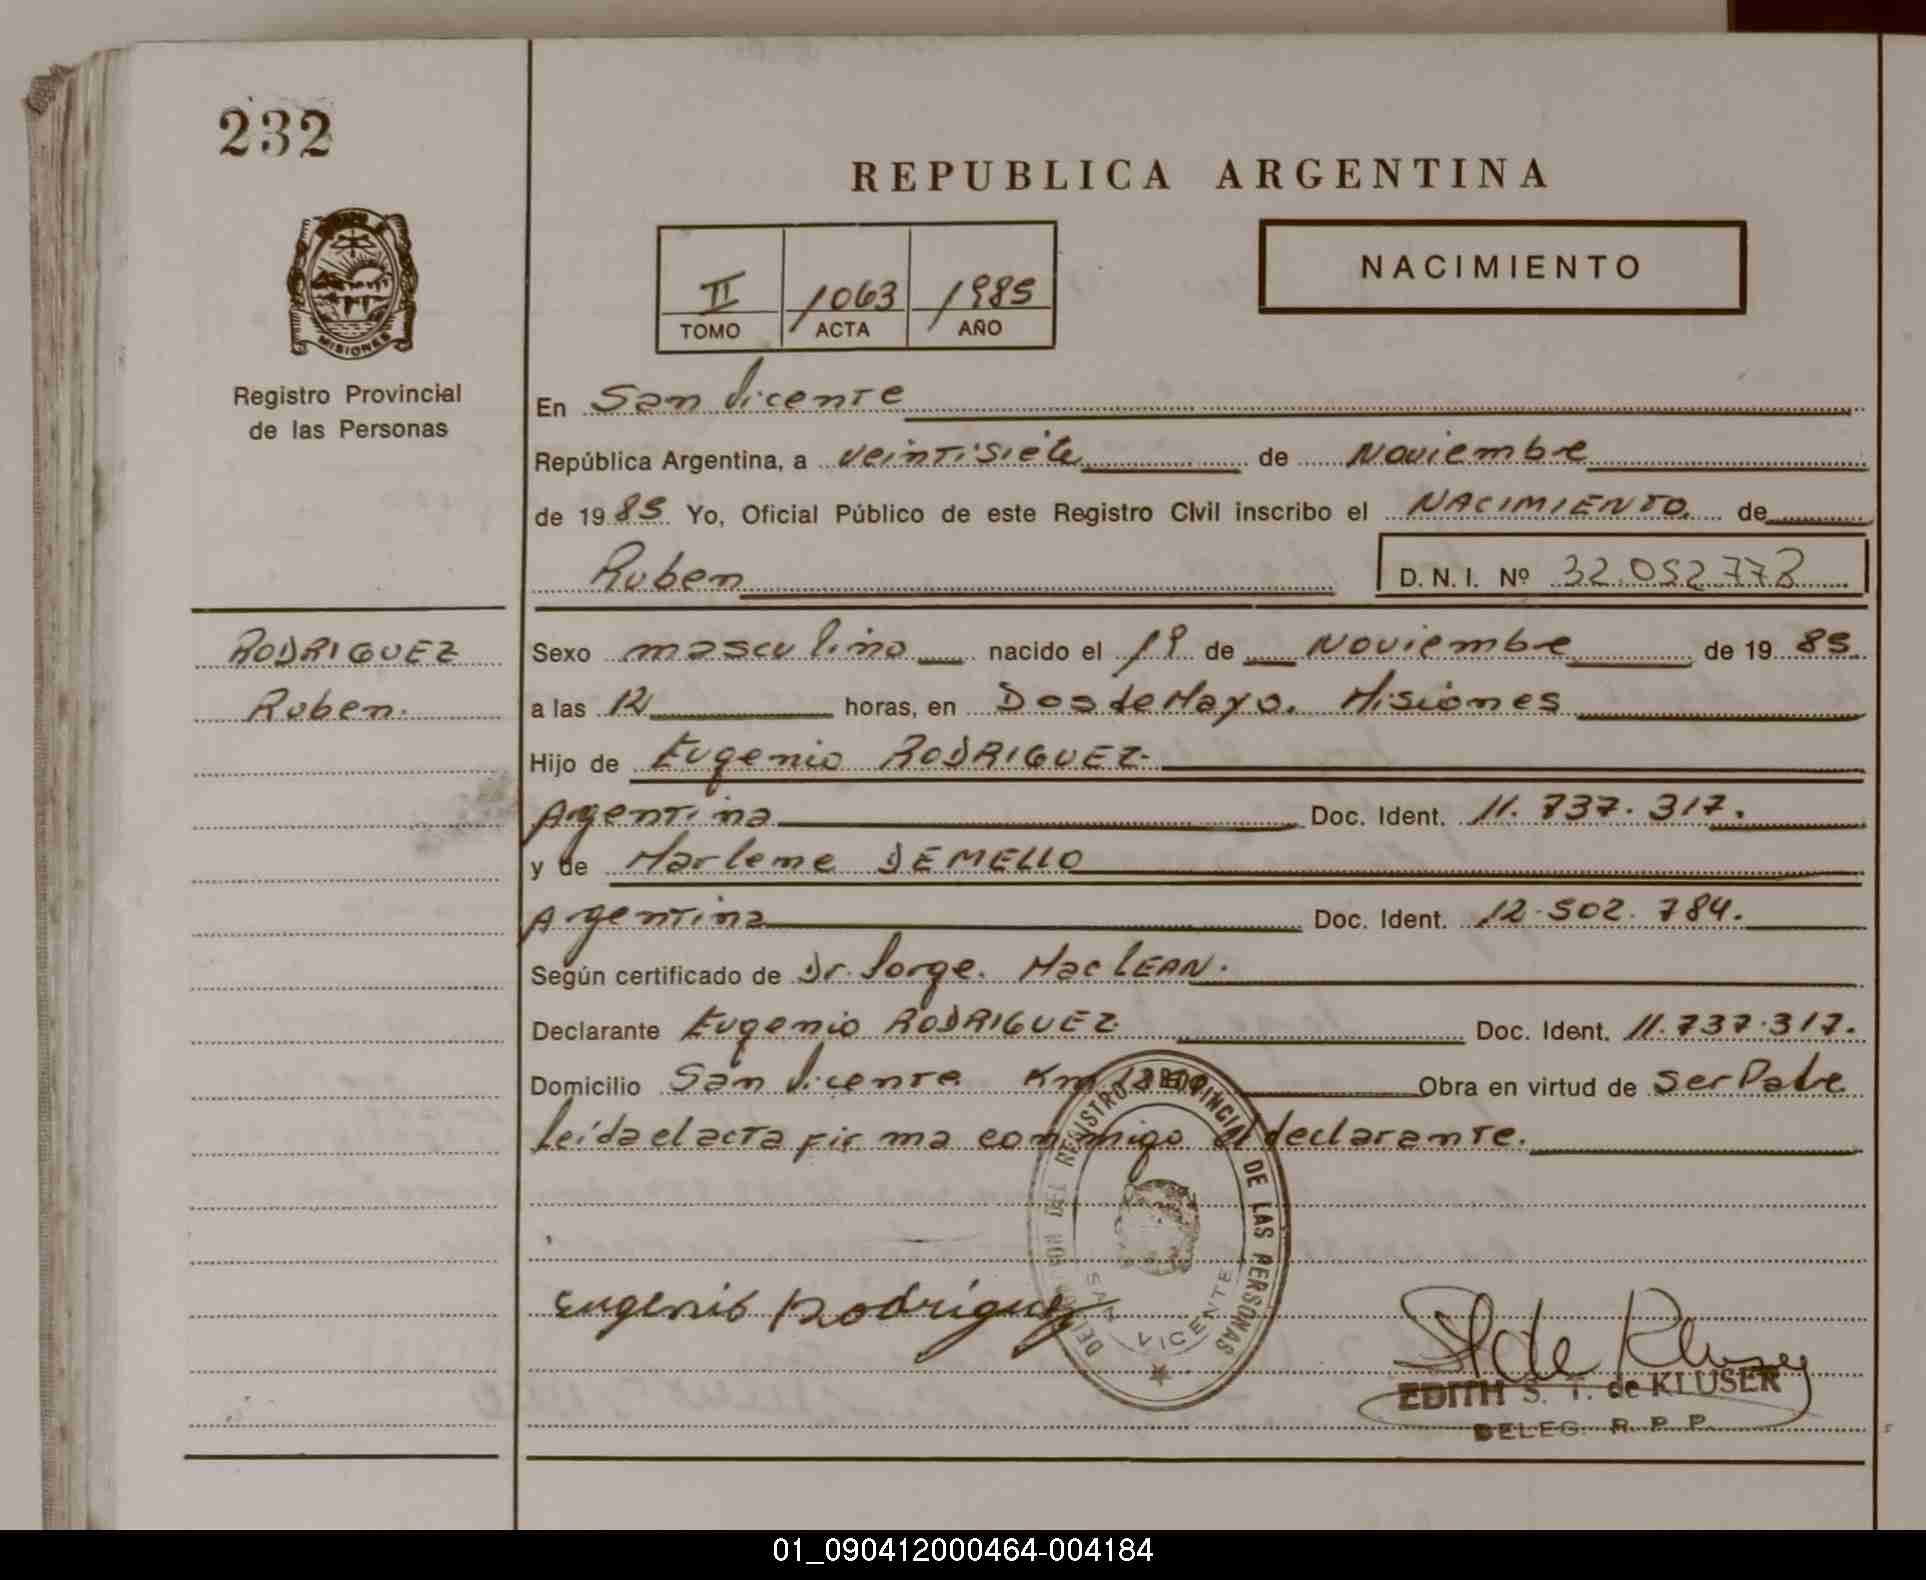 232
REPUBLICA ARGENTINA
NACIMIENTO
II 1063 1985
TOMO ACTA AÑO
MISIONES
Registro Provincial
de las Personas
En San Vicente
República Argentina, a veintisiete de Noviembre
de 1985 Yo, Oficial Público de este Registro Civil inscribo el NACIMIENTO de
Ruben D.N.I. Nº 32.052.773
RODRIGUEZ
Ruben.
Sexo masculino nacido el 19 de Noviembre de 1985
a las 12 horas, en Dos de Mayo. Misiones
Hijo de Eugenio RODRIGUEZ
Argentina Doc. Ident. 11.737.317.
y de Marleme DEMELLO
Argentina Doc. Ident. 12.502.784.
Según certificado de Dr. Jorge. MacLEAN.
Declarante Eugenio RODRIGUEZ Doc. Ident. 11.737.317.
Domicilio San Vicente Km Obra en virtud de ser Padre
leída el acta firma conmigo el declarante.
DELEGACION DEL REGISTRO PROVINCIAL DE LAS PERSONAS
SAN VICENTE
Eugenio Rodriguez
S T de Kluser
EDITH S. T. de KLUSER
DELEG. R. P. P.
01_090412000464-004184